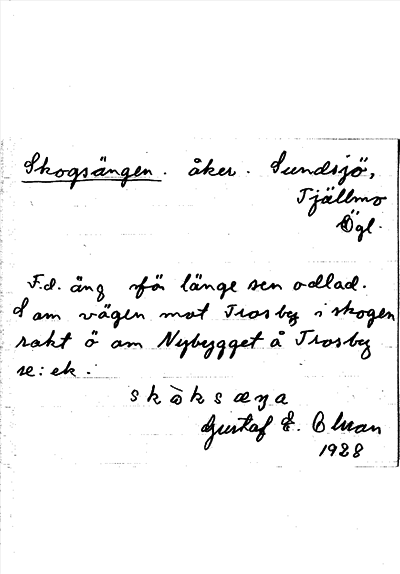 Skogsängen. åker. Sundsjö,
Tjällmo
Ögl.
F.d. äng för länge sen odlad.
S om vägen mot Trosby i skogen
rakt ö om Nybygget å Trosby
se: ek.
skògsæŋa
Gustaf E. Olsson
1928